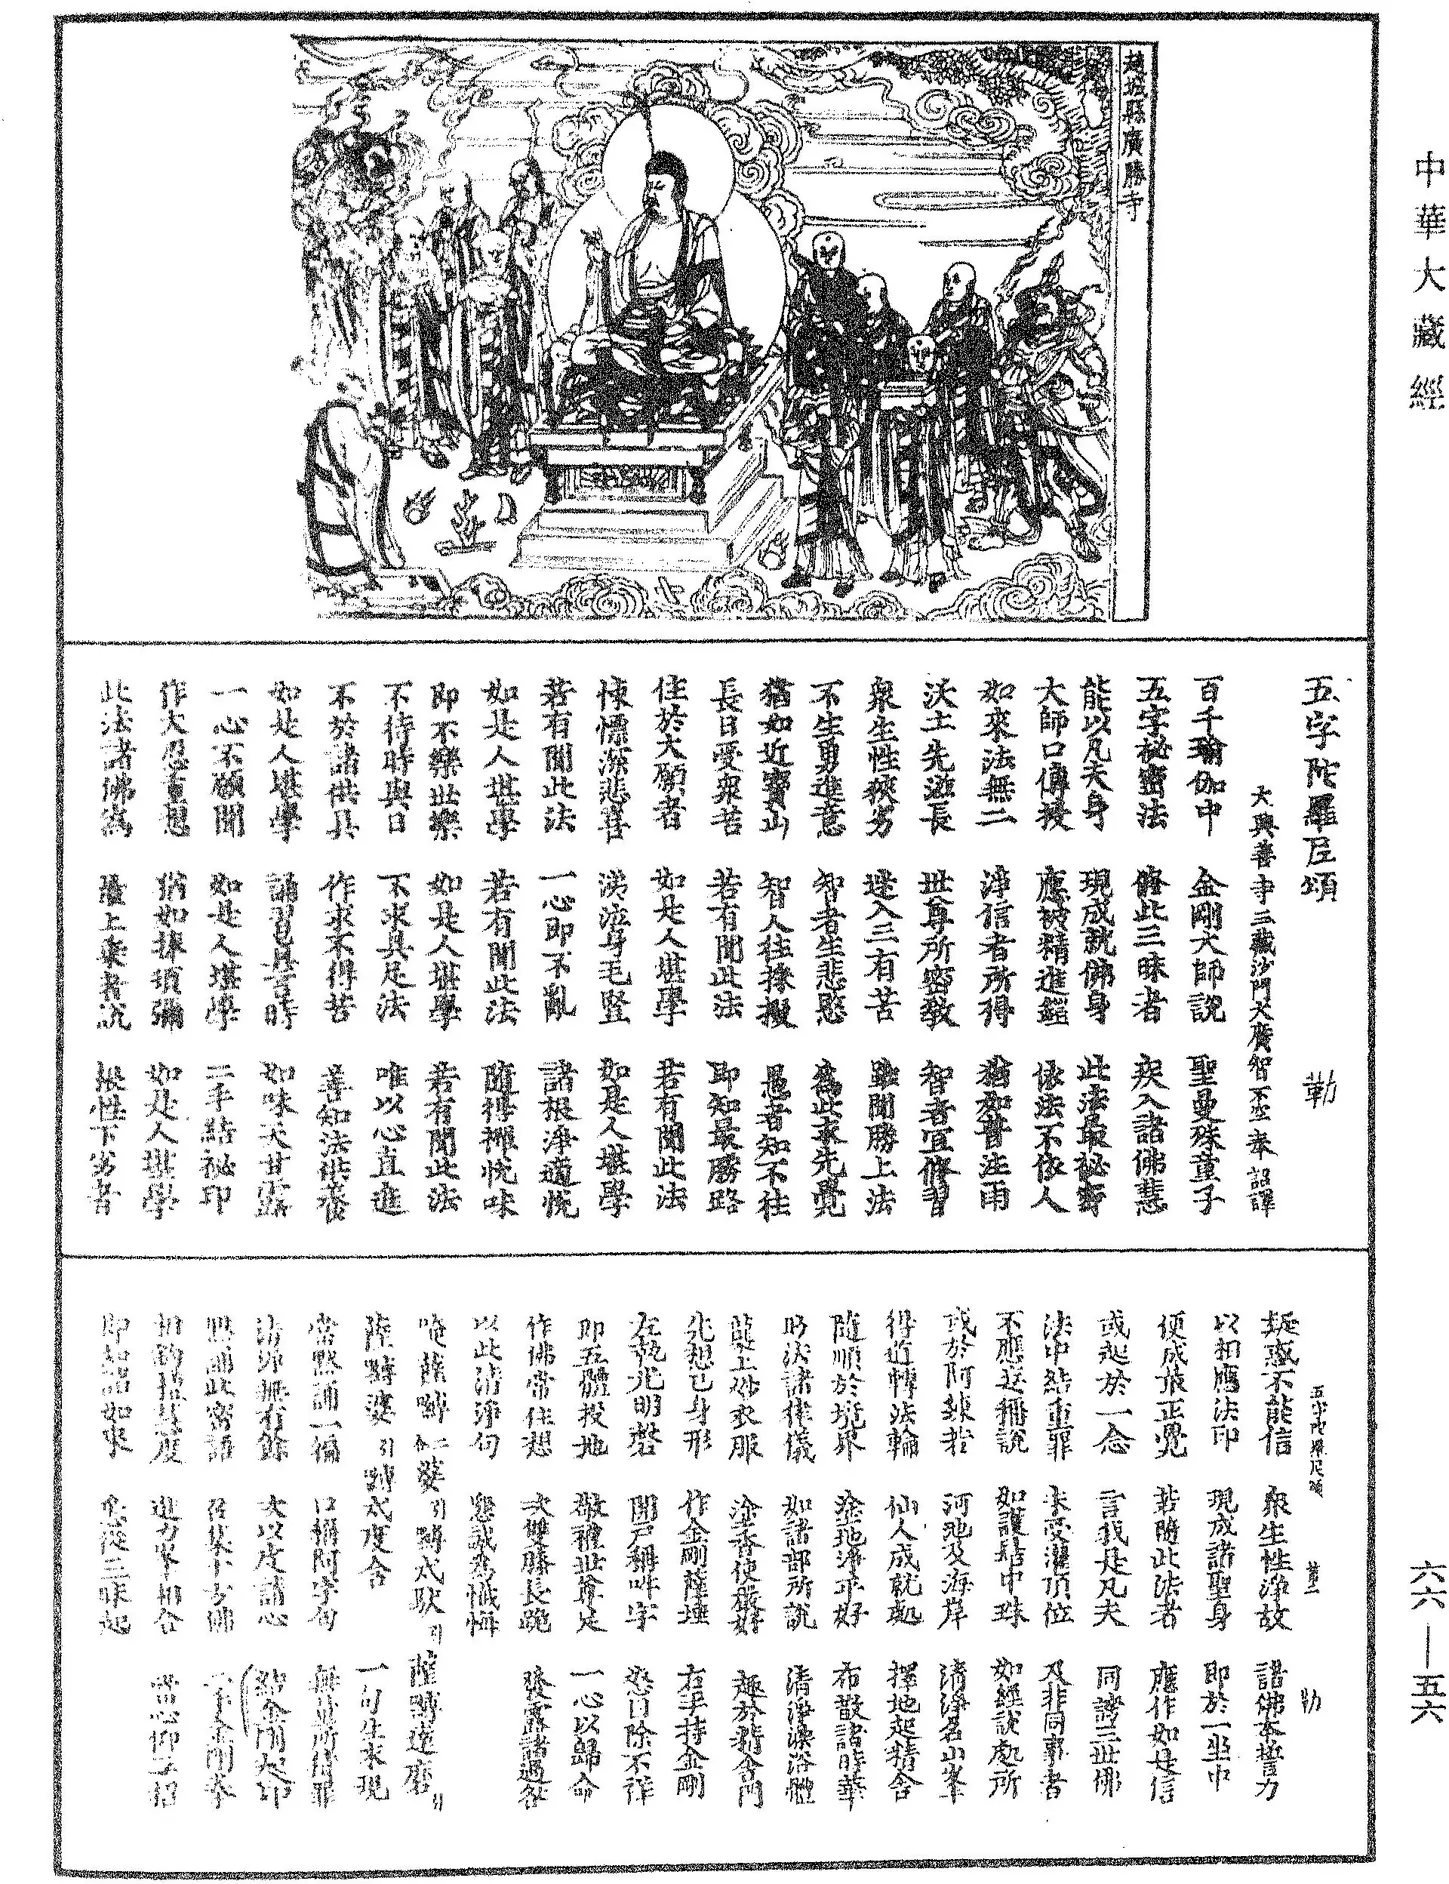 中華大藏經
趙城縣廣勝寺
五字陀羅尼頌 勒
大興善寺三藏沙門大廣智不空奉 詔譯
百千瑜伽中 金剛大師說 聖曼殊童子
五字秘密法 脩此三昧者 疾入諸佛慧
能以凡夫身 現成就佛身 此法最秘密
大師口傳授 應被精進鎧 依法不依人
如來法無二 淨信者所得 猶如普注雨
沃土先滋長 世尊所密教 智者宜修習
衆生性狹劣 逆入三有苦 雖聞勝上法
不生勇進意 智者生悲愍 為此求先覺
猶如近寶山 智人往採掇 愚者知不往
長日受衆苦 若有聞此法 即知最勝路
住於大願者 如是人堪學 若有聞此法
悚慄深悲喜 涕泣身毛豎 如是人堪學
若有聞此法 一心即不亂 諸根淨適悅
如是人堪學 若有聞此法 隨得禪悅味
即不樂世樂 如是人堪學 若有聞此法
不待時與日 不求具足法 唯以心直進
不於諸供具 作求不得苦 善知法供養
如是人堪學 誦習是言時 如味天甘露
一心不願聞 如是人堪學 二手結秘印
作大忍重想 猶如捧須彌 如是人堪學
此法諸佛為 最上乘者說 根性下劣者
五字陀羅尼頌 第二 勒
疑惑不能信 衆生性淨故 諸佛本誓力
以相應法印 現成諸聖身 即於一坐中
便成最正覺 若隨此法者 應作如是信
或起於一念 言我是凡夫 同謗三世佛
法中結重罪 未受灌頂位 及非同事者
不應妄稱說 如護髻中珠 如經說處所
或於阿練若 河池及海岸 清淨名山峯
得道轉法輪 仙人成就處 擇地起精舍
隨順於境界 塗地淨平好 布散諸時華
明決諸律儀 如諸部所說 清淨澡浴體
薩上妙衣服 塗香使嚴好 趣於精舍門
先想己身形 作金剛薩埵 右手持金剛
左執光明磬 開戶稱吽字 怒目除不祥
即五體投地 敬禮世尊足 一心以歸命
作佛常住想 次雙膝長跪 發露諸過咎
以此清淨句 懇誠為懺悔
唵薩嚩 婆引嚩 秫馱引薩嚩達磨引
薩嚩婆引嚩秫度含 一句生來現
當默誦一徧 口稱阿字句 無量所積罪
清淨無有餘 次以皮誦心 結金剛起印
默誦此密語 召集十方佛 二手金剛拳
相鉤檀慧度 進力峯相合 當心仰三招
即想諸如來 悉從三昧起
六六—五六